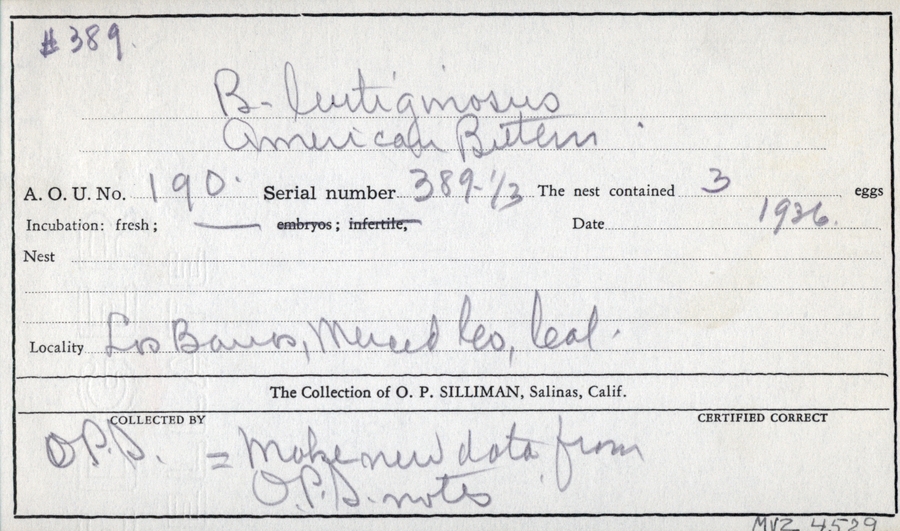 # 389.
B- lentiginosus
American Bittern.
A. O. U. No. 190. Serial number 389-1/3 The nest contained 3 eggs
Incubation: fresh; — embryos; infertile, Date 1936.
Nest
Locality Los Banos, Merced Co, Cal.
The Collection of O. P. SILLIMAN, Salinas, Calif.
COLLECTED BY CERTIFIED CORRECT
O.P.S. = Make new data from
O.P.S. notes
MVZ 4529